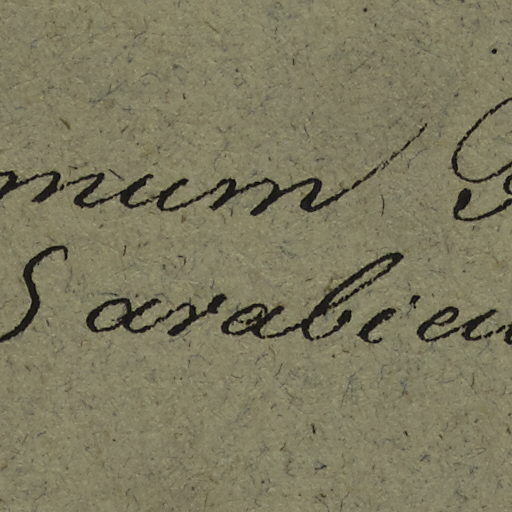 mum
Sarabieu